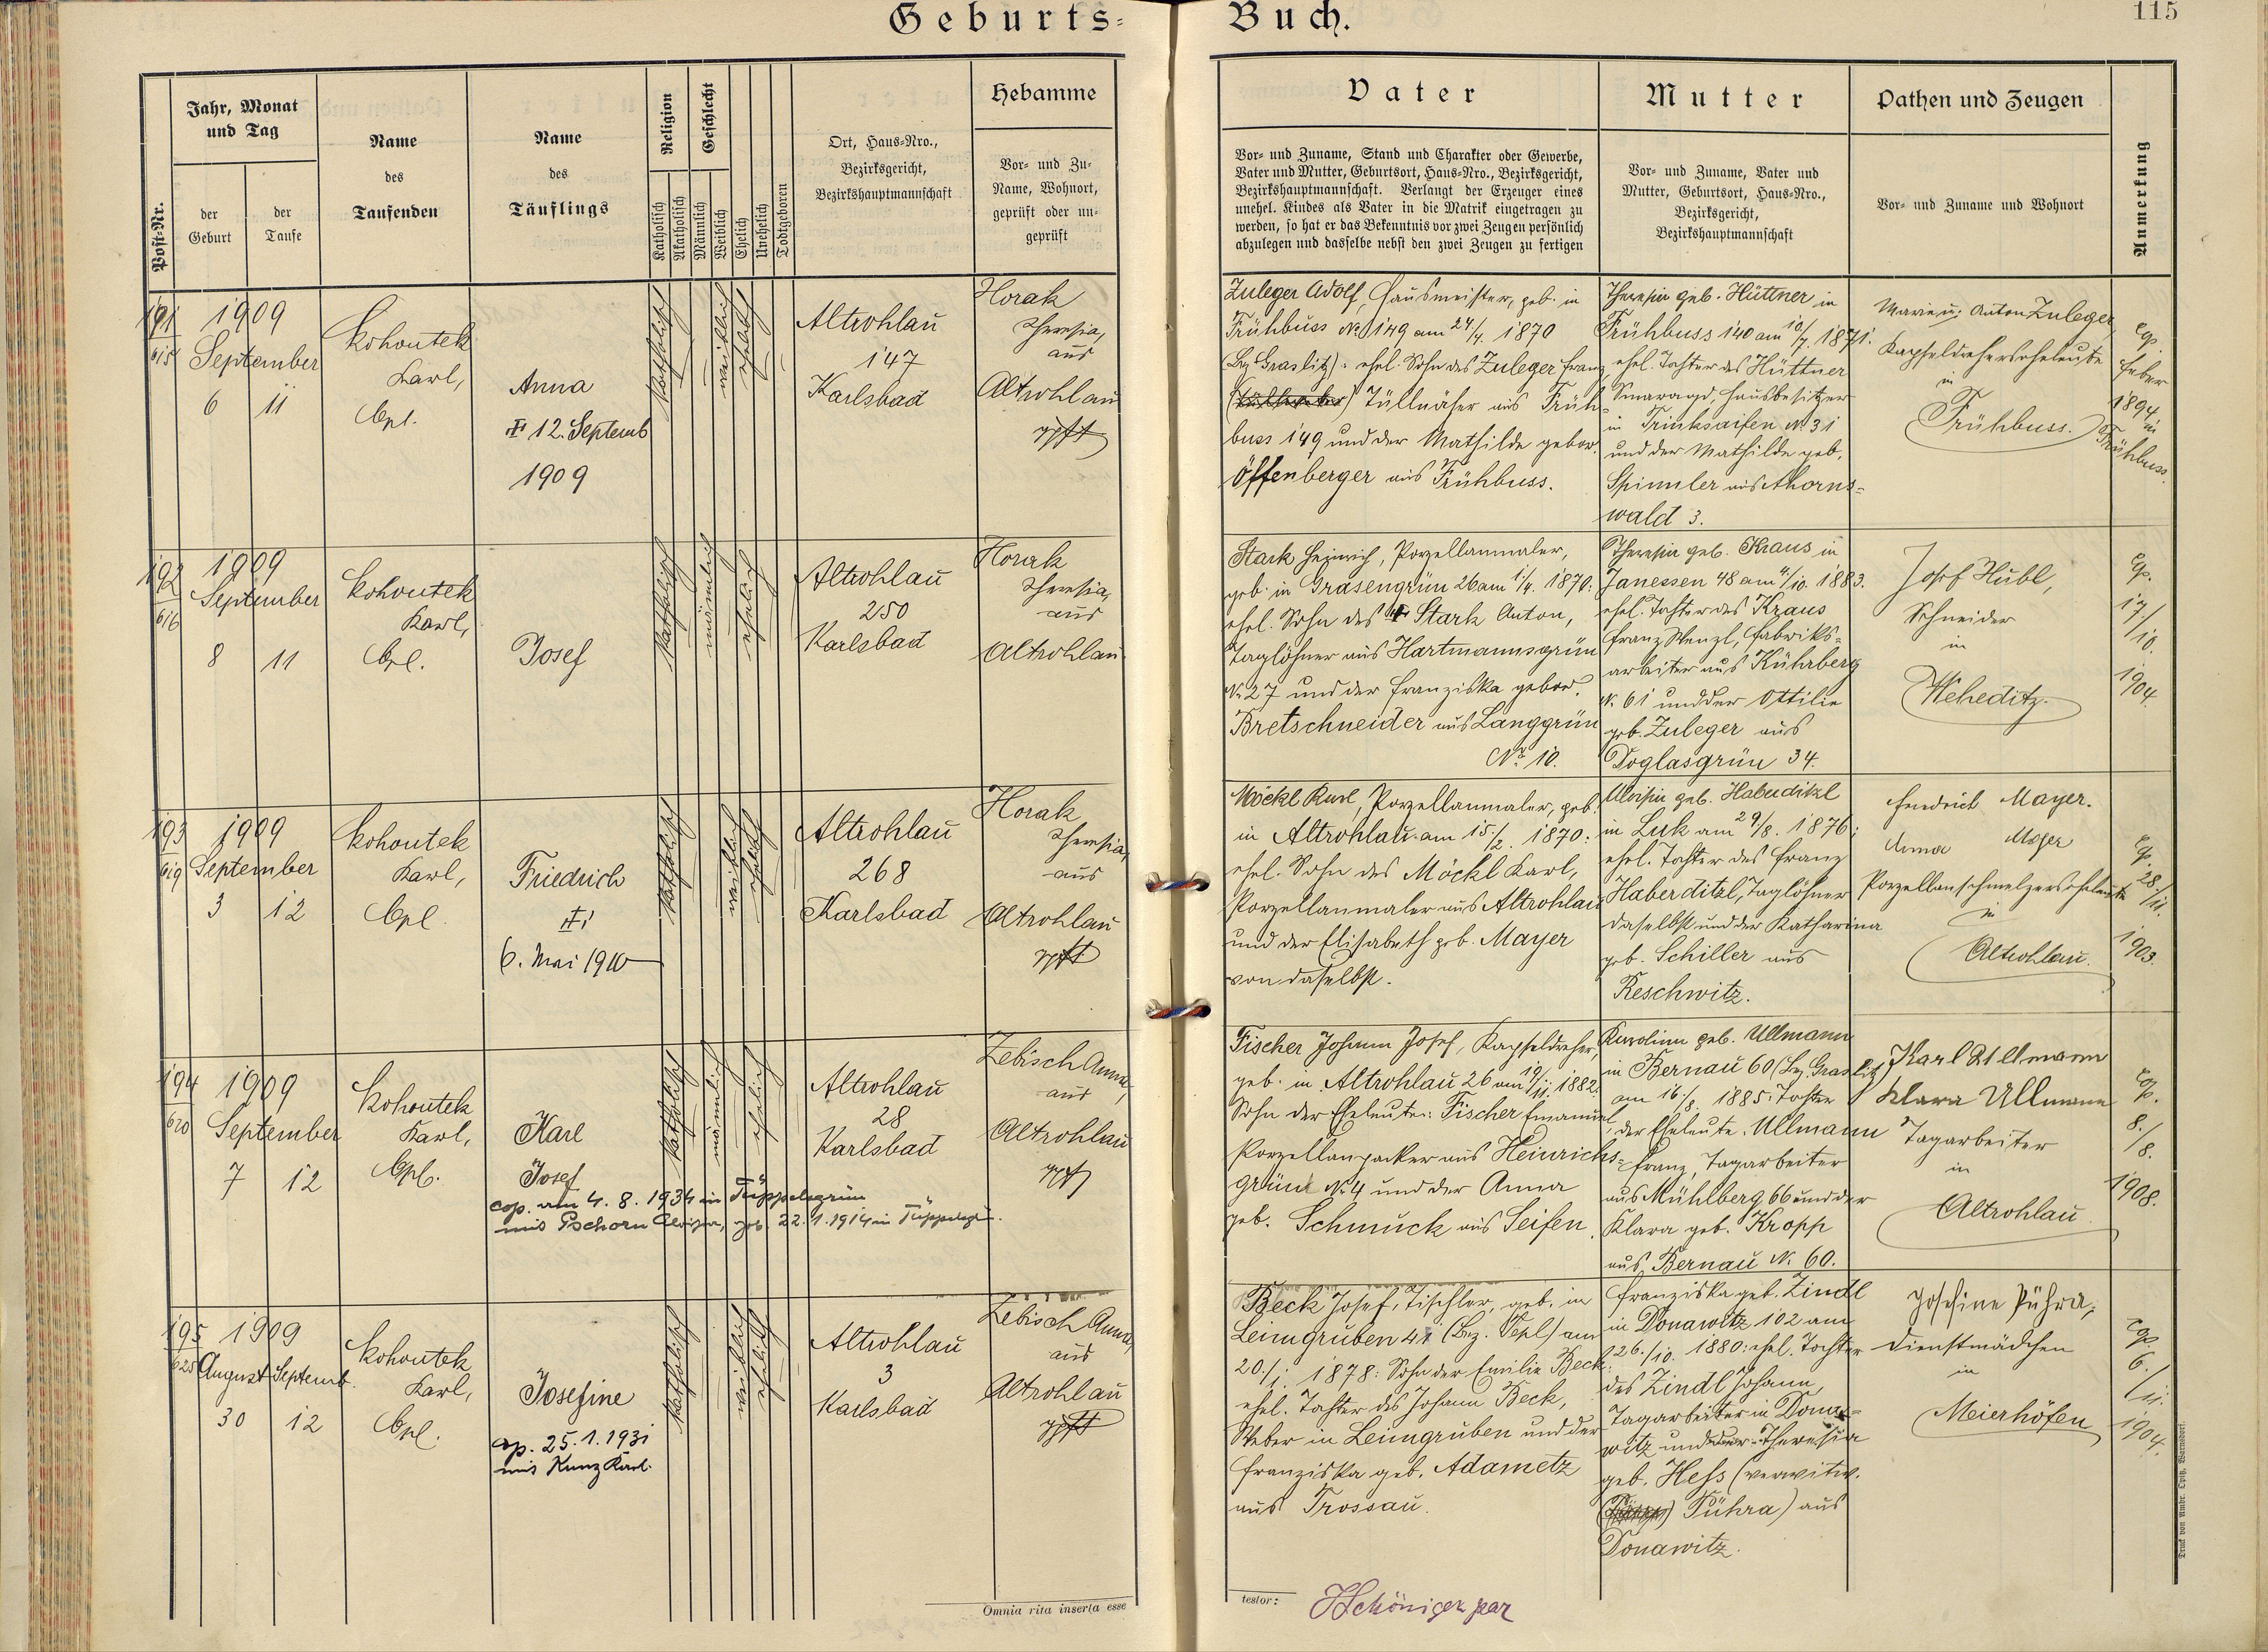 Geburts-Buch.
115
Post-Nr.
Jahr, Monat
und Tag
der
Geburt
der
Taufe
Name
des
Taufenden
Name
des
Täuflings
Religion
Katholisch
Akatholisch
Geschlecht
Männlich
Weiblich
Ehelich
Unehelich
Todtgeboren
Ort, Haus-Nro.,
Bezirksgericht,
Bezirkshauptmannschaft
Hebamme
Vor- und Zu-
Name, Wohnort,
geprüft oder un-
geprüft
Vater
Vor- und Zuname, Stand und Charakter oder Gewerbe,
Vater und Mutter, Geburtsort, Haus-Nro., Bezirksgericht,
Bezirkshauptmannschaft. Verlangt der Erzeuger eines
unehel. Kindes als Vater in die Matrik eingetragen zu
werden, so hat er das Bekenntnis vor zwei Zeugen persönlich
abzulegen und dasselbe nebst den zwei Zeugen zu fertigen
Mutter
Vor- und Zuname, Vater und
Mutter, Geburtsort, Haus-Nro.,
Bezirksgericht,
Bezirkshauptmannschaft
Pathen und Zeugen
Vor- und Zuname und Wohnort
Anmerkung
191
615
1909
September
6 11
Kohoutek
Karl,
Cpl.
Anna
12. Septemb
1909
katholisch
weiblich
ehelich
Altrohlau
147
Karlsbad
Horak
Theresia,
aus
Altrohlau
gpft
Zuleger Adolf, Hausmeister, geb. in
Frühbuss No 149 am 24/4. 1870
(Bez Graslitz): ehel. Sohn des Zuleger Franz,
Tüllnäher aus Früh-
buss 149 und der Mathilde gebor.
Öffenberger aus Frühbuss.
Theresia geb. Hüttner in
Frühbuss 140 am 10/7. 1871.
ehel. Tochter des Hüttner
Smaragd, Hausbesitzer
in Trinksaifen No 31
und der Mathilde geb.
Spinnler aus Ahorns-
wald 3.
Marie u. Anton Zuleger
Kapseldreherseheleute
in
Frühbuss.
cop.
Feber
1894
in
Frühbuss.
192
616
1909
September
8 11
Kohoutek
Karl,
Cpl.
Josef
katholisch
männlich
ehelich
Altrohlau
250
Karlsbad
Horak
Theresia,
aus
Altrohlau.
Stark Heinrich, Porzellanmaler,
geb. in Grasengrün 26 am 1/4. 1870:
ehel. Sohn des Stark Anton,
Taglöhner aus Hartmannsgrün
No 27 und der Franziska gebor.
Bretschneider aus Langgrün
No 10.
Theresia geb. Kraus in
Janessen 48 am 4/10. 1883.
ehel. Tochter des Kraus
Franz Wenzl, Fabriks-
arbeiter aus Kührberg
No 61 und der Ottilie
geb. Zuleger aus
Doglasgrün 34.
Josef Hübl,
Schneider
in
Weheditz.
cop.
17/
10.
1904.
193
619
1909
September
3 12
Kohoutek
Karl,
Cpl.
Friedrich
6. Mai 1910
katholisch
weiblich
ehelich
Altrohlau
268
Karlsbad
Horak
Theresia,
aus
Altrohlau
gpft
Möckl Karl, Porzellanmaler, geb.
in Altrohlau am 15./2. 1870:
ehel. Sohn des Möckl Karl,
Porzellanmaler aus Altrohlau
und der Elisabeth geb. Mayer
von daselbst.
Aloisia geb. Haberditzl
in Luk am 29/8. 1876:
ehel. Tochter des Franz
Haberditzl, Taglöhner
daselbst und der Katharina
geb. Schiller aus
Reschwitz.
Friedrich Mayer.
Anna Mayer
Porzellanschmelzerseheleute
in
Altrohlau.
cop.
28./
11.
1903.
194
620
1909
September
7 12
Kohoutek
Karl,
Cpl.
Karl
Josef
cop. am 4. 8. 1934 in Tüppelsgrün
mit Pschorn Aloisia, geb. 22. 1. 1914 in Tüppelsgrün.
katholisch
männlich
ehelich
Altrohlau
28
Karlsbad
Zebisch Anna,
aus
Altrohlau
gpft
Fischer Johann Josef, Kapseldreher,
geb. in Altrohlau 26 am 19/11. 1882:
Sohn der Eheleute: Fischer Emanuel,
Porzellanpacker aus Heinrichs-
grün No 4 und der Anna
geb. Schmuck aus Seifen.
Karolina geb. Ullmann
in Bernau 60 (Bez. Graslitz)
am 16./8. 1885: Tochter
der Eheleute. Ullmann
Franz, Tagarbeiter
aus Mühlberg 66 und der
Klara geb. Kropp
aus Bernau No. 60.
Karl Ullmann
Klara Ullmann
Tagarbeiter
in
Altrohlau
cop.
8./
8.
1908.
195
625
1909
August Septemb.
30 12
Kohoutek
Karl,
Cpl.
Josefine
cop. 25. 1. 1931
mit Kunz Karl.
katholisch
weiblich
ehelich
Altrohlau
3
Karlsbad
Zebisch Anna,
aus
Altrohlau
gpft
Beck Josef, Tischler, geb. in
Leimgruben 41 (Bez. Tepl) am
20/1. 1878: Sohn der Emilie Beck:
ehel. Tochter des Johann Beck,
Weber in Leimgruben und der
Franziska geb. Adametz
aus Trossau.
Franziska geb. Zindl
in Donawitz 102 am
26./10. 1880: ehel. Tochter
des Zindl Johann,
Tagarbeiter in Dona-
witz und der Theresia
geb. Hess (verwitw.
Pühra) aus
Donawitz.
Josefine Pühra,
Dienstmädchen
in
Meierhöfen
cop.
6./
11.
1904.
Omnia rita inserta esse
testor:
Druck von Ambr. Opitz, Warnsdorf.